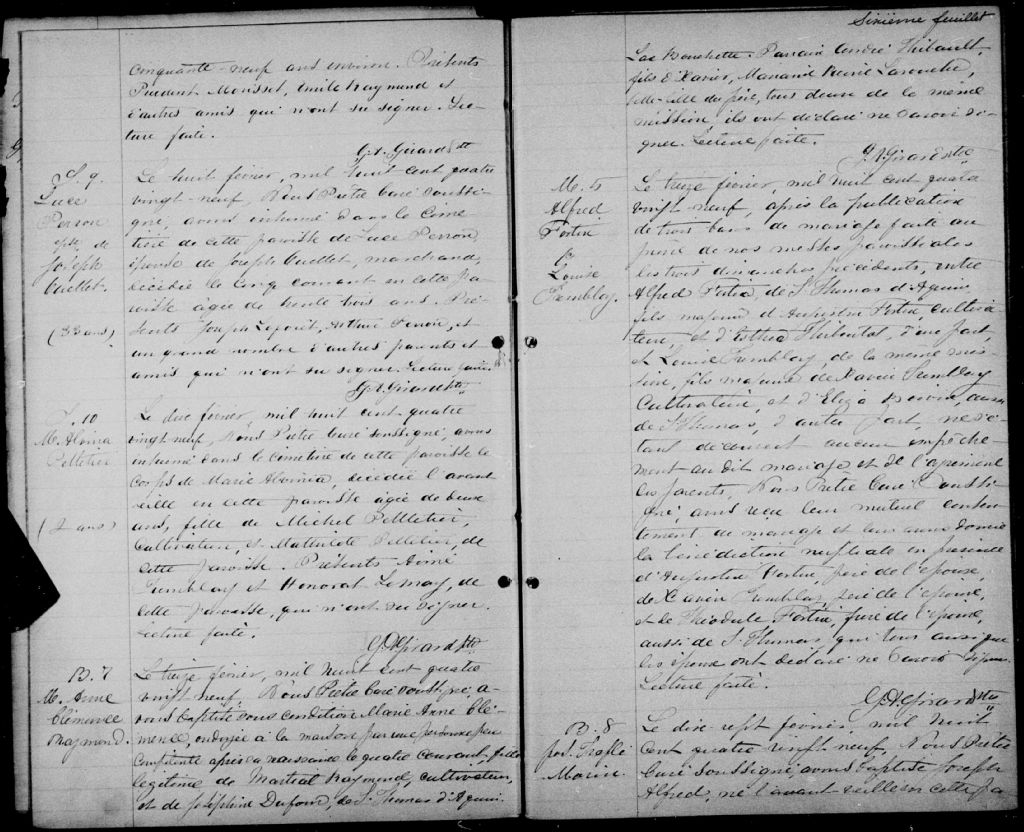 cinquante-neuf ans environ. Présents
Prudent Morisset, Emile Raymond et
d'autres amis qui n'ont su signer. Lec-
ture faite.
G. A. Girard Ptre
S. 9.
Luce
Perron
épse de
Joseph
Ouellet.
(33 ans)
Le huit février, mil huit cent quatre
vingt-neuf, Nous Prêtre Curé soussi-
gné, avons inhumé dans le Cime
tière de cette paroisse de Luce Perron,
épouse de Joseph Ouellet, marchand,
décédée le cinq courant en cette pa-
roisse âgée de trente trois ans. Pré-
sents Joseph Lefort, Arthur Perron, et
un grand nombre d'autres parents et
amis qui n'ont su signer. Lecture faite.
G. A. Girard Ptre
S. 10
M. Alvina
Pelletier
(2 ans)
Le dix février, mil huit cent quatre
vingt-neuf, Nous Prêtre Curé soussigné, avons
inhumé dans le cimetière de cette paroisse le
Corps de Marie Alvina, décédée l'avant
veille en cette paroisse âgée de deux
ans, fille de Michel Pelletier,
Cultivateur, et Mathilde Pelletier, de
cette paroisse. Présents Aimé
Tremblay et Honorat Lemay, de
cette paroisse, qui n'ont su signer.
Lecture faite.
G. A. Girard Ptre
B. 7
M. Anne
Clémence
Raymond.
Le treize février, mil huit cent quatre
vingt neuf, Nous Prêtre Curé soussigné, a-
vons baptisé sous condition Marie Anne Clé-
mence, ondoyée à la maison par une personne peu
compétente après sa naissance le quatre courant, fille
légitime de Martial Raymond, cultivateur,
et de Joséphine Dufour, de St. Thomas d'Aquin.
Sixième feuillet
Lac Bouchette. Parrain André Thibault,
fils d'Xavier, Marraine Marie Larouche,
belle-fille du père, tous deux de la même
mission, ils ont déclaré ne savoir si-
gner. Lecture faite.
G. A. Girard Ptre
M. 5
Alfred
Fortin
&
Louise
Tremblay.
Le treize février, mil huit cent quatre
vingt neuf, après la publication
de trois bans de mariage faite au
prône de nos messes paroissiales
les trois dimanches précédents, entre
Alfred Fortin, de St Thomas d'Aquin
fils majeur d'Augustin Fortin, cultiva-
teur, et d'Esther Thibeault, d'une part,
et Louise Tremblay, de la même mis-
sion, fille majeure de Xavier Tremblay
Cultivateur, et d'Eliza aussi
de St Thomas, d'autre part, ne s'é-
tant découvert aucun empêche-
ment au dit mariage et de l'agrément
des parents, Nous Prêtre Curé soussi-
gné, avons reçu leur mutuel consen-
tement de mariage et leur avons donné
la bénédiction nuptiale en présence
d'Augustin Fortin, père de l'époux,
de Xavier Tremblay, père de l'épouse,
et de Théodule Fortin, frère de l'époux,
aussi de St. Thomas, qui tous ainsi que
les époux ont déclaré ne savoir signer.
Lecture faite.
G. A. Girard Ptre
B. 8
Jos.
Morin.
Le dix sept février, mil huit
cent quatre vingt neuf, Nous Prêtre
Curé soussigné, avons baptisé Joseph
Alfred, né l'avant veille en cette pa